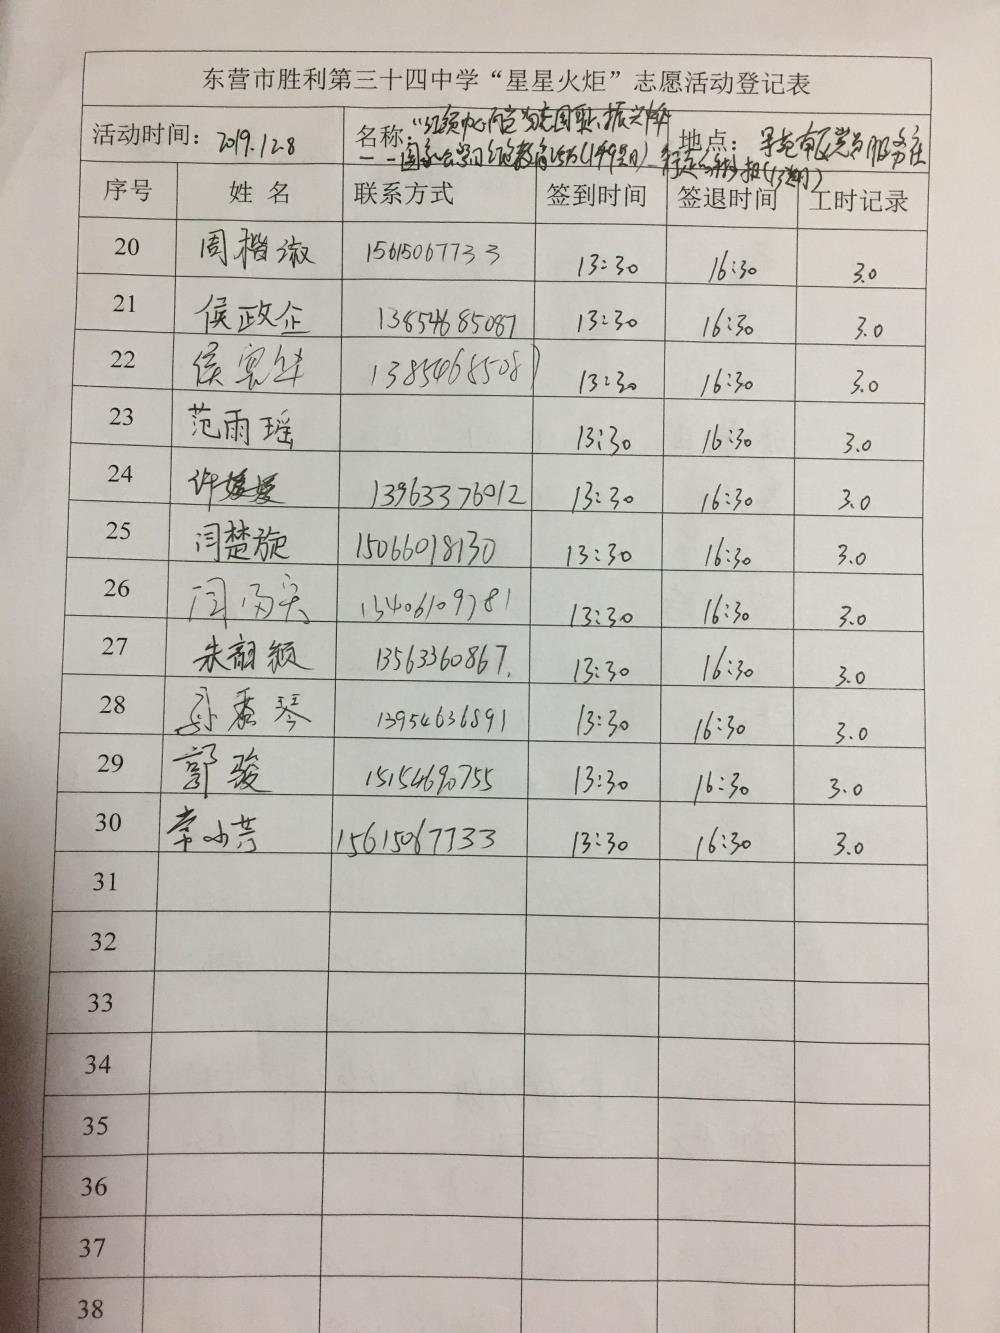 东营市胜利第三十四中学“星星火炬”志愿活动登记表
活动时间：2019.12.8 名称： 地点： 党员服务站
序号 姓名 联系方式 签到时间 签退时间 工时记录
20 周楷淑 15615067733 13:30 16:30 3.0
21 侯政企 13854685087 13:30 16:30 3.0
22 侯 13854685087 13:30 16:30 3.0
23 范雨瑶 13:30 16:30 3.0
24 许媛媛 13963376012 13:30 16:30 3.0
25 闫楚旋 15066018130 13:30 16:30 3.0
26 闫 13406109781 13:30 16:30 3.0
27 朱韵颖 13563360867. 13:30 16:30 3.0
28 孙秀琴 13954636891 13:30 16:30 3.0
29 郭骏 15154690755 13:30 16:30 3.0
30 常小芳 15615067733 13:30 16:30 3.0
31
32
33
34
35
36
37
38